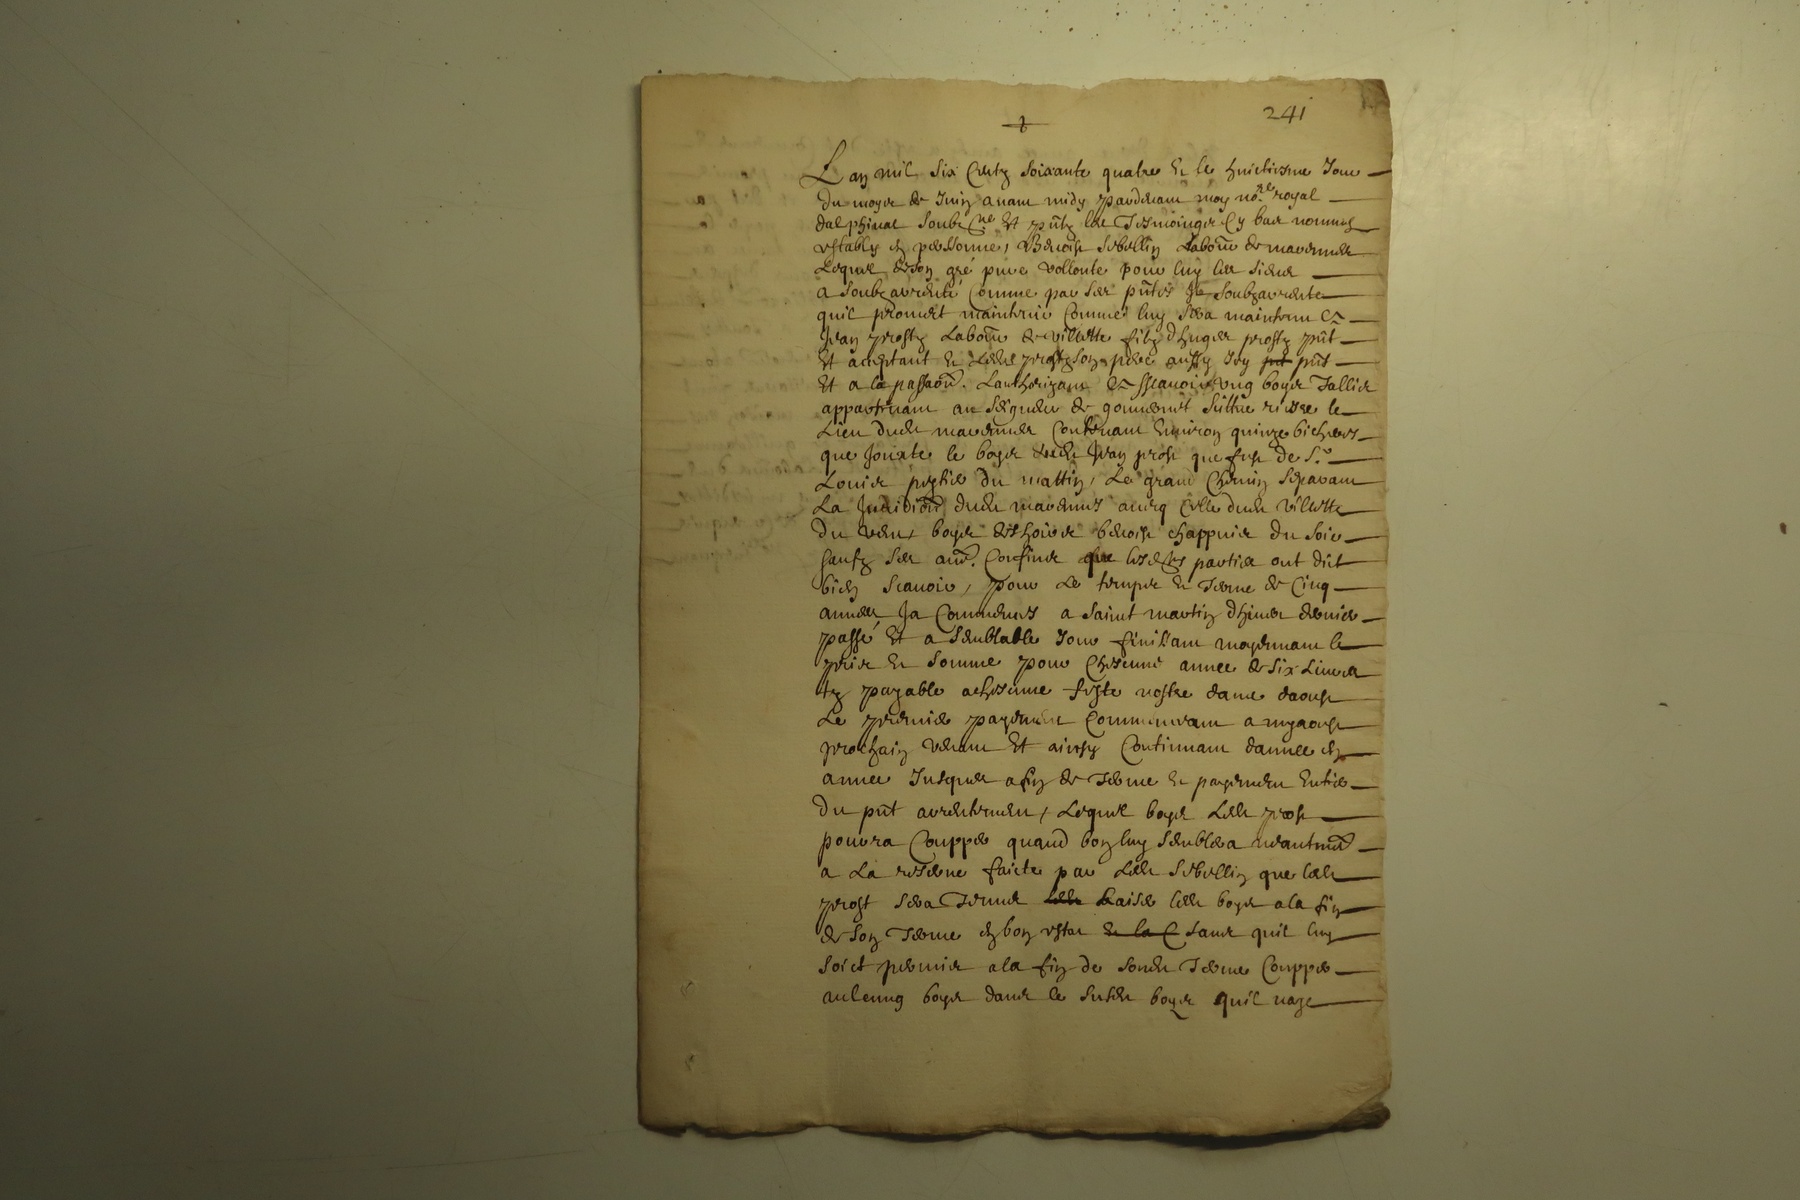 241
Lan mil six Centz soixante quatre & le huictiesme Jour
du moys de Juing avant midy pardevant moy no.re royal
dalphinal soubz.ne Et pñtz les Tesmoingz Cy bas nommes
estably en personne, Benoist Sebellin Labour de
Lequel de son gré pure vollonte pour luy les siens
a soubzarrenté Comme par ses pñtes soubzarrente
quil promect maintenir Comme luy sera maintenu a
Jean prost Labour de villette filz dhugues prost pñt
Et acceptant & Ledit prost son pere aussy Icy pñt
Et a la passaon. Lauthorizant a scavoir ung boys Tallis
appartenant au seigneur de sittue riere le
Lieu dudit Contenant Environ quinze bicheres
que Jouxte le boys dudit Jean prost que fust de S.r
Louis du mattin, Le grand Chemin separant
La Juridiōn dudit avecq Celle dudit villette
du vent, boys des hoirs benoist chappuis du soir
saufz ses au. Confins que lesdites parties ont dict
bien scavoir, pour Le temps & Terme de Cinq
annees Ja Commences a saint martin dhiver dernier
passé Et a semblable Jour finissant moyennant le
pris & somme pour Chescune annee de six Livres
tz payable a chescune feste nostre dame daoust
Le premier payement Commencant a myaoust
prochain venant Et ainsy Continuant dannee en
annee Jusques a fin de Terme & payement Entier
du pñt arrentement, Lequel boys Ledit prost
pourra Coupper quand bon luy semblera neantm
a La reserve faicte par Ledit Sebellin que ledit
prost sera Tenu laiser ledit boys a la fin
de son Terme en bon estat & la C sans quil luy
soict permis a la fin de sondit Terme Coupper
aulcung boys dans le susdit boys quil naye